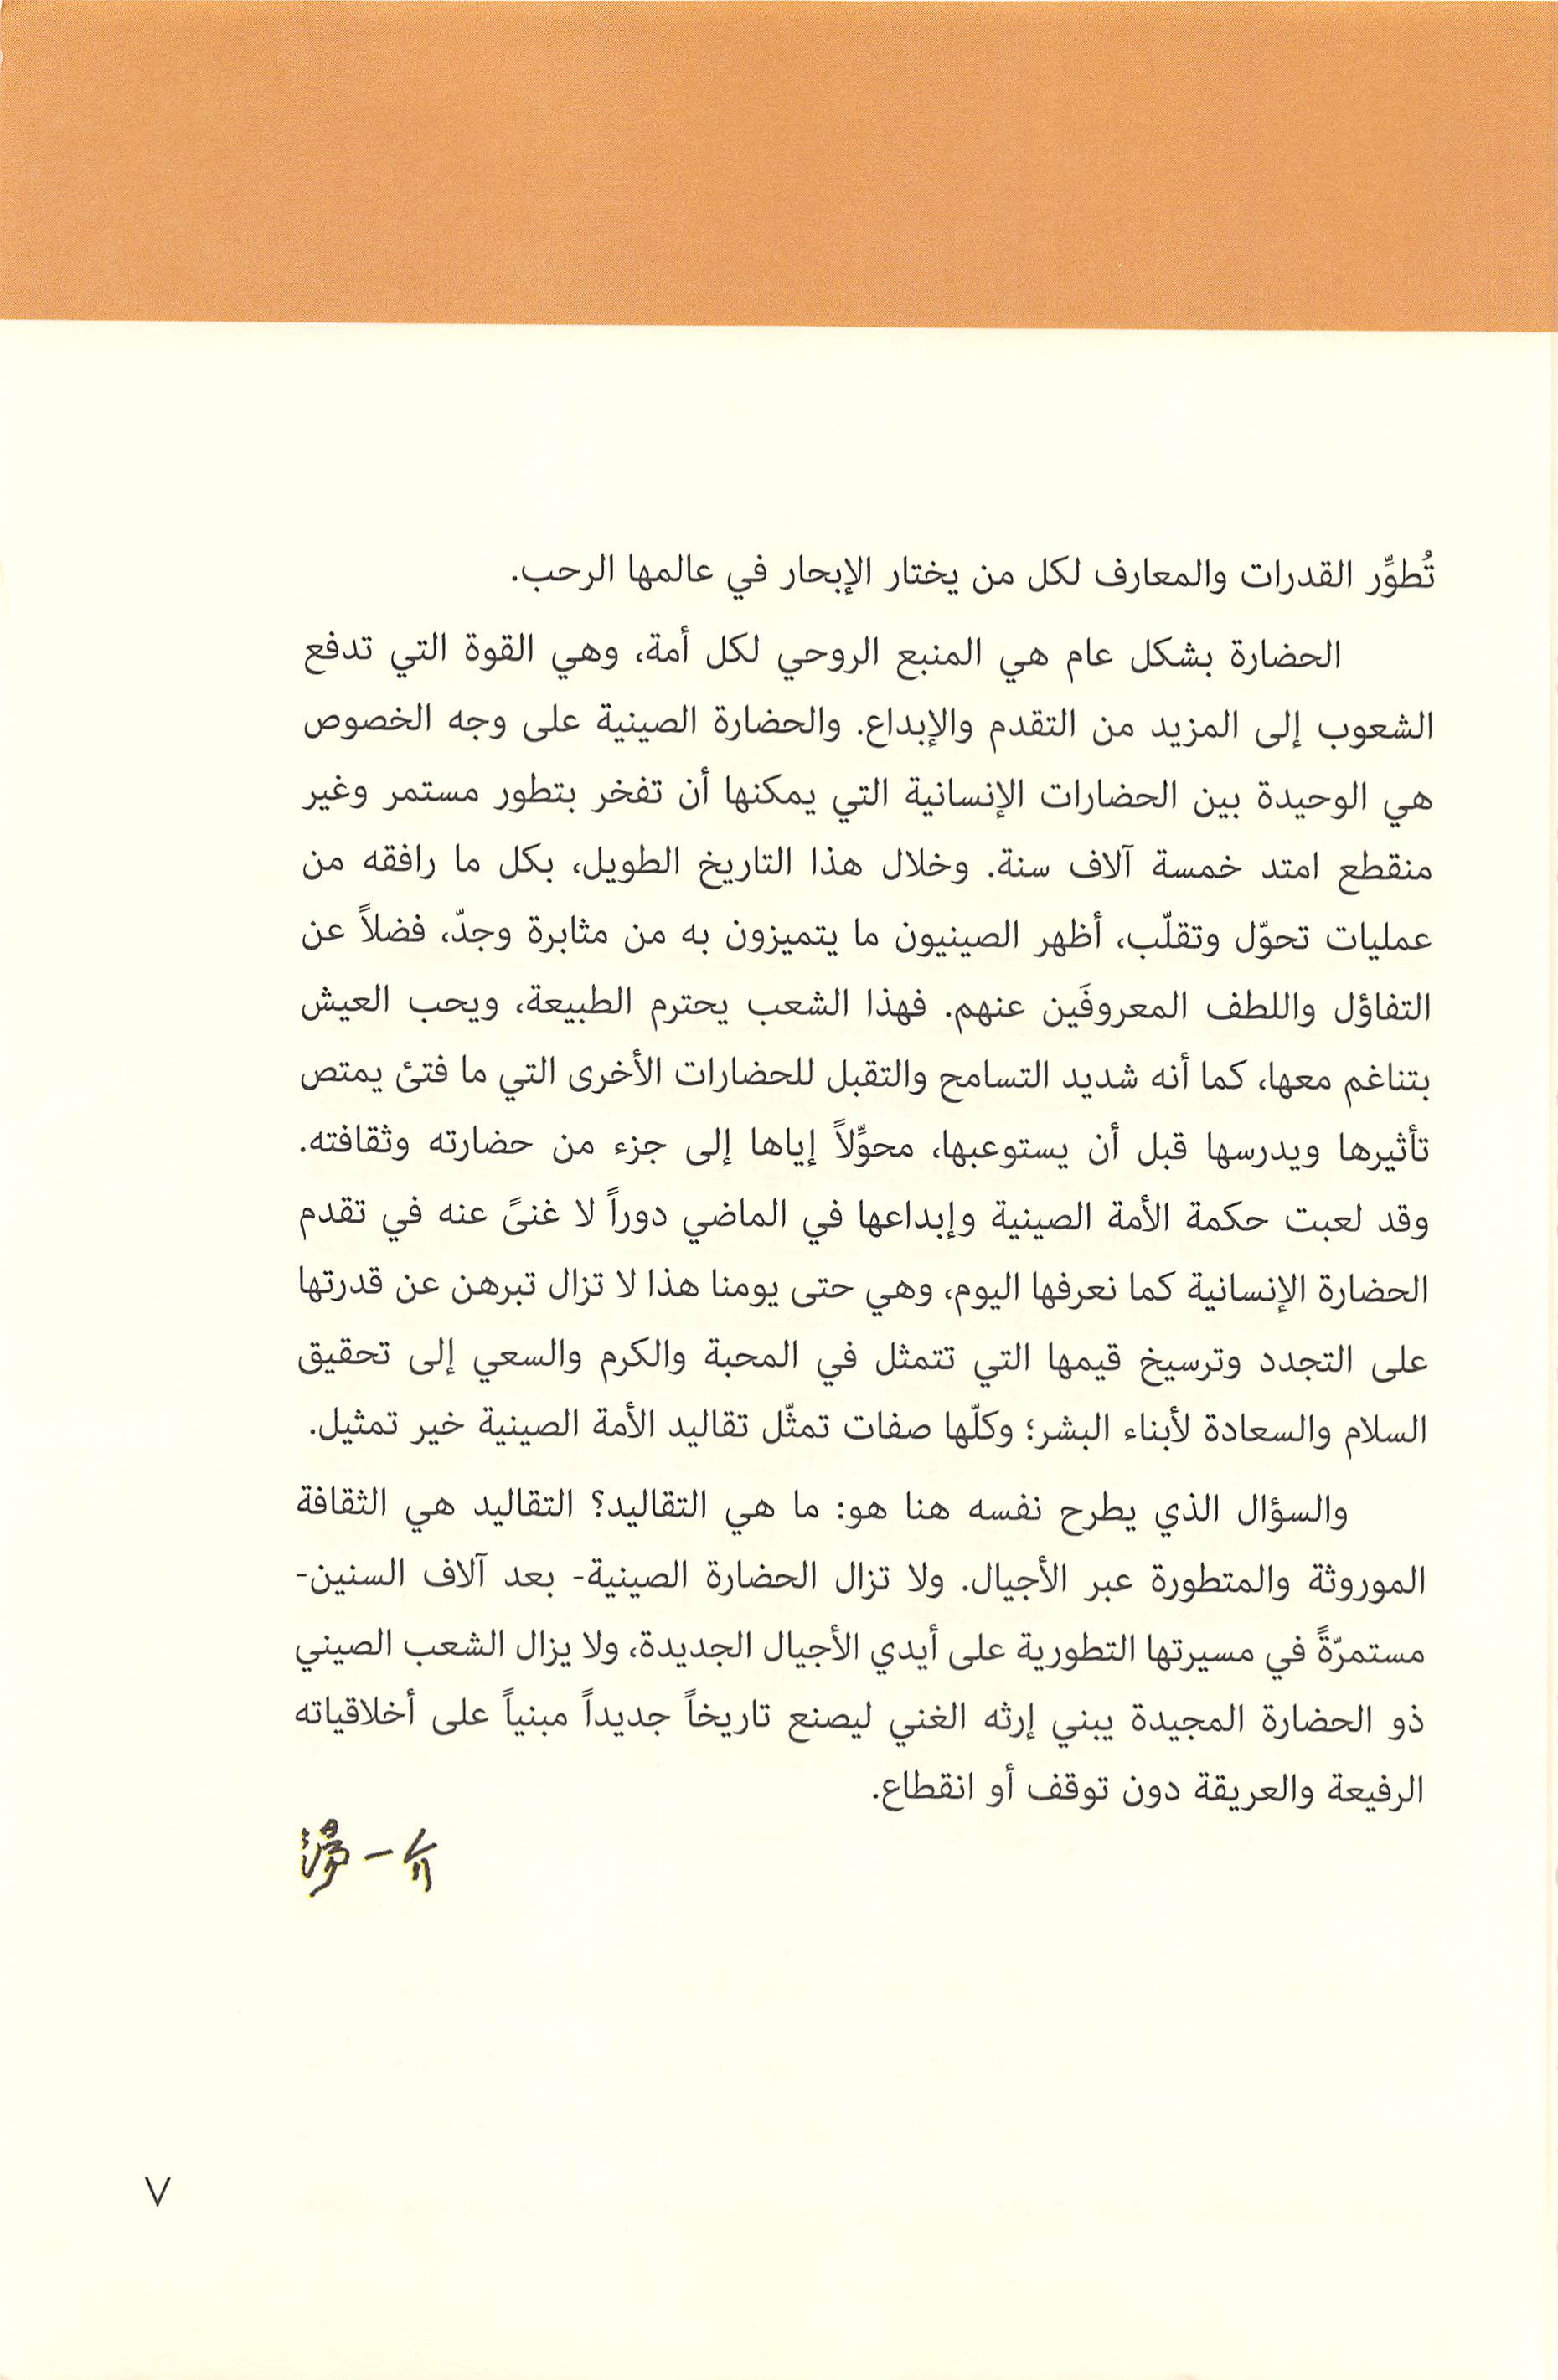 تُطوِّر القدرات والمعارف لكل من يختار الإبحار في عالمها الرحب.
الحضارة بشكل عام هي المنبع الروحي لكل أمة، وهي القوة التي تدفع
الشعوب إلى المزيد من التقدم والإبداع. والحضارة الصينية على وجه الخصوص
هي الوحيدة بين الحضارات الإنسانية التي يمكنها أن تفخر بتطور مستمر وغير
منقطع امتد خمسة آلاف سنة. وخلال هذا التاريخ الطويل، بكل ما رافقه من
عمليات تحوّل وتقلّب، أظهر الصينيون ما يتميزون به من مثابرة وجدّ، فضلاً عن
التفاؤل واللطف المعروفَين عنهم. فهذا الشعب يحترم الطبيعة، ويحب العيش
بتناغم معها، كما أنه شديد التسامح والتقبل للحضارات الأخرى التي ما فتئ يمتص
تأثيرها ويدرسها قبل أن يستوعبها، محوِّلاً إياها إلى جزء من حضارته وثقافته.
وقد لعبت حكمة الأمة الصينية وإبداعها في الماضي دوراً لا غنىً عنه في تقدم
الحضارة الإنسانية كما نعرفها اليوم، وهي حتى يومنا هذا لا تزال تبرهن عن قدرتها
على التجدد وترسيخ قيمها التي تتمثل في المحبة والكرم والسعي إلى تحقيق
السلام والسعادة لأبناء البشر؛ وكلّها صفات تمثّل تقاليد الأمة الصينية خير تمثيل.
والسؤال الذي يطرح نفسه هنا هو: ما هي التقاليد؟ التقاليد هي الثقافة
الموروثة والمتطورة عبر الأجيال. ولا تزال الحضارة الصينية- بعد آلاف السنين-
مستمرّةً في مسيرتها التطورية على أيدي الأجيال الجديدة، ولا يزال الشعب الصيني
ذو الحضارة المجيدة يبني إرثه الغني ليصنع تاريخاً جديداً مبنياً على أخلاقياته
الرفيعة والعريقة دون توقف أو انقطاع.
٧